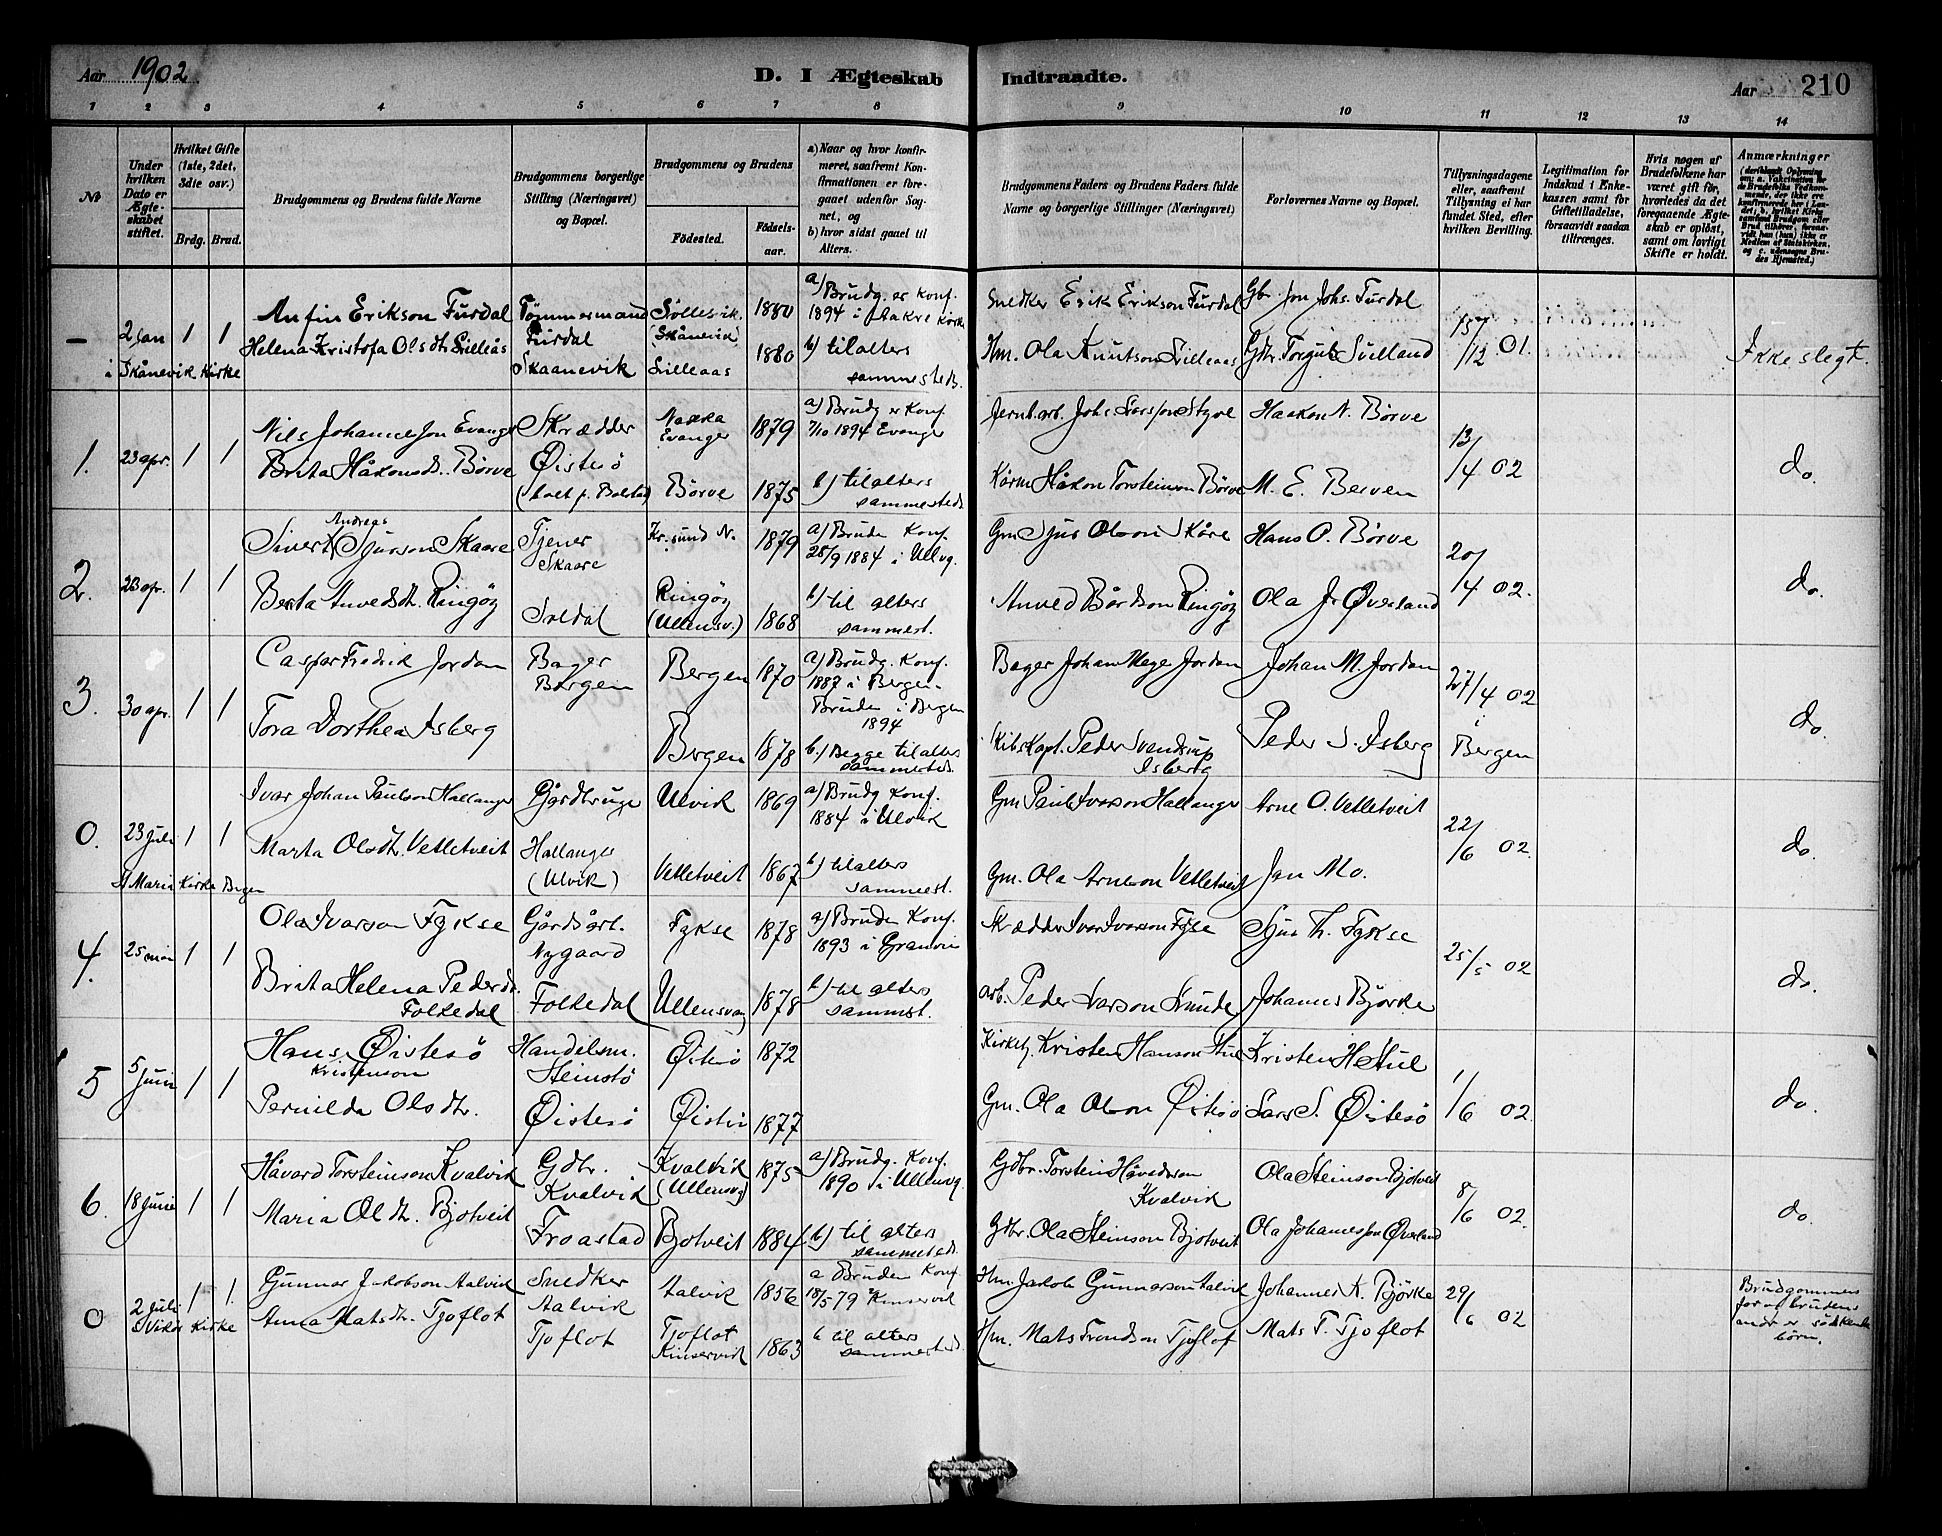 Aar 1902
D. I Ægteskab Indtraadte.
Aar 210
1 2 3 4 5 6 7 8 9 10 11 12 13 14
№
Under hvilken Dato er Ægteskabet stiftet.
Hvilket Gifte (1ste, 2det, 3die osv.)
Brdg. Brud.
Brudgommens og Brudens fulde Navne
Brudgommens borgerlige Stilling (Næringsvei) og Bopæl.
Brudgommens og Brudens
Fødested. Fødselsaar.
a) Naar og hvor konfirmeret, saafremt Konfirmationen er foregaaet udenfor Sognet, og
b) hvor sidst gaaet til Alters.
Brudgommens Faders og Brudens Faders fulde Navne og borgerlige Stillinger (Næringsvei)
Forlovernes Navne og Bopæl.
Tillysningsdagene eller, saafremt Tillysning ei har fundet Sted, efter hvilken Bevilling.
Legitimation for Indskud i Enkekassen samt for Giftetilladelse, forsaavidt saadan tiltrænges.
Hvis nogen af Brudefolkene har været gift før, hvorledes da det foregaaende Ægteskab er opløst, samt om lovligt Skifte er holdt.
Anmærkninger
— 2 Jan 1 1
i Skånevik Kirke
Anfin Erikson Furdal
Helena Kristofa Olsdtr Lilleås
Tømmermand
Furdal
Skaanevik
(Skånevik)
Lilleaas
1880
1880
a) Brudg. er Konf.
1894 i Aakre Kirke
b) til alters
sammesteds.
Snedker Erik Erikson Furdal
Hm. Ola Knutson Lilleaas
Gbr. Jon Johs. Furdal
15/12 01.
Ikke slegt.
1. 23 apr. 1 1
Brita Håkonsd. Børve
Skrædder
Øistesø
Evanger
Børve
1879
1875
a) Brudg er Konf.
7/10 1894 Evanger
b) til alters
sammesteds
Håkon Torsteinson Børve
Haakon N. Børve
M. E. Berven
13/4 02
do.
2. 23 apr. 1 1
Andreas
Sivert Sjurson Skaare
Berta Anvedsdt. Ringøy
Tjener
Skaare
Kr.sund N.
Ringøy
(Ullensv.)
1879
1868
a) Bruden Konf.
28/9 1884 i Ullvg.
b) til alters
sammest.
Gm Sjur Olson Skåre
Anved Bårdson Ringøy
Hans O. Børve
Ola J. Øverland
20/4 02.
do.
3. 30 apr. 1 1
Casper Fredrik Jordan
Tora Dorthea Isberg
Bager
Bergen
Bergen
Bergen
1870
1878
a) Brudg. Konf.
1887 i Bergen.
Bruden i Bergen
1894
b) Begge til alters
sammesteds.
Bager Johan Jordan
Skibskapt. Peder Svendrup
Isberg
Johan M. Jordan
Peder S. Isberg
27/4 02
i
Bergen
do.
0. 23 Juli 1 1
St Maria Kirke Bergen
Ivar Johan Paulson Hallanger
Marta Olsdtr. Vetletveit
Gårdbruger
Hallanger
(Ulvik)
Ulvik
Vetletveit
1869
1867
a) Brudg Konf.
1884 i Ulvik
b) til alters
sammest.
Gm Paul Ivarson Hallanger
Gm. Ola Arneson Vetletveit
Arne O. Vetletveit
Jan Mo.
22/6 02.
do.
4. 25 mai 1 1
Ola Ivarson Fykse
Brita Helena Pedersd.
Folkedal
Gårdsarb.
Nygaard
Folkedal
Fykse
Ullensvang
1878
1878
a) Bruden Konf.
1893 i Granvin
b) til alters
sammest.
Skrædder Ivar Ivarson Fykse
arb. Peder
Sjur Th. Fykse
Johannes Bjørke
25/5 02
do.
5 5 Juni 1 1
Hans Øistesø
Kristenson
Pernilda Olsdtr.
Handelsm.
Steinstø
Øistesø
Øistesø
1872
1877
Kirketj. Kristen Hanson
Gm. Ola Olson Øistesø
Lars S. Øistesø
1/6 02.
do.
6. 18 Juni 1 1
Håvard Torsteinson Kvalvik
Maria Olsdtr. Bjotveit
Gdbr.
Kvalvik
Froastad
Kvalvik
(Ullensvg)
Bjotveit
1875
1884
a) Brudg. Konf.
1890 i Ullensvg.
b) til alters
sammesteds.
Gdbr. Torstein Håvardson
Kvalvik
Gdbr. Ola Steinson Bjotveit
Ola Steinson Bjotveit
Ola Johannesson Øverland
8/6 02.
do.
0 2 Juli 1 1.
i Vikør Kirke
Gunnar Jakobson Aalvik
Anna Matsdtr. Tjoflot
Snedker
Aalvik
Tjoflot
Aalvik
Tjoflot
Kinservik
1856
1863
a Bruden Konf
18/5 79 Kinservik
b til alters
sammesteds.
Hm. Jakob Gunnarson Aalvik
Hm. Mats Trondson Tjoflot
Johannes A. Bjørke
Mats T. Tjoflot
29/6 02
Brudgommens
far og brudens
er søskende
børn.